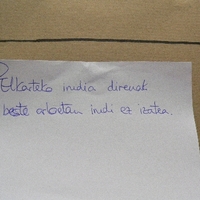 Elkarteko irudia direnak
beste arloetan irudi ez izatea.